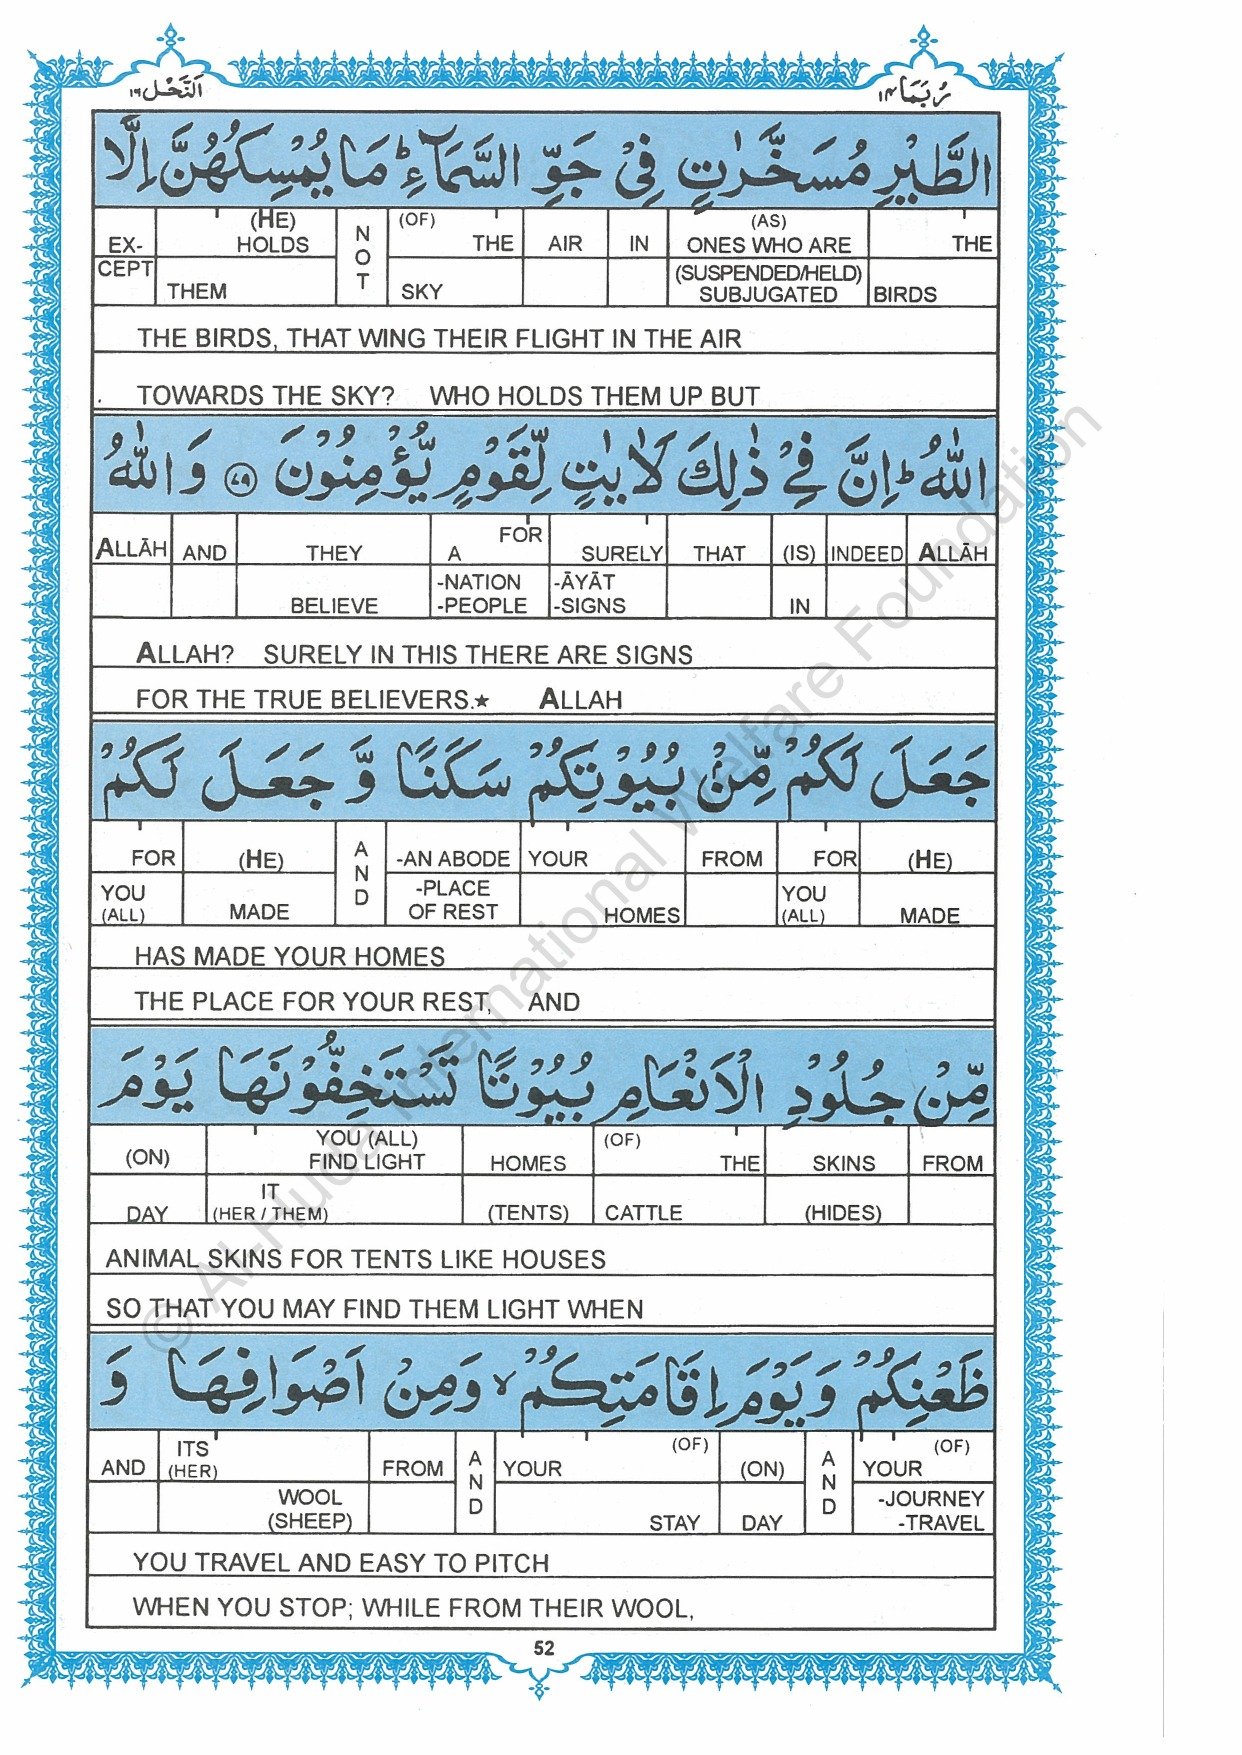 رُبَمَا ١٤
اَلنَّحْل ١٦
الطَّيْرِ مُسَخَّرٰتٍ فِيْ جَوِّ السَّمَآءِ ؕ مَا يُمْسِكُهُنَّ اِلَّا
EX- (HE) HOLDS NOT (OF) THE AIR IN (AS) ONES WHO ARE THE
CEPT THEM SKY (SUSPENDED/HELD) SUBJUGATED BIRDS
THE BIRDS, THAT WING THEIR FLIGHT IN THE AIR
TOWARDS THE SKY? WHO HOLDS THEM UP BUT
اللّٰهُ ؕ اِنَّ فِيْ ذٰلِكَ لَاٰيٰتٍ لِّقَوْمٍ يُّؤْمِنُوْنَ ﴿٧٩﴾ وَ اللّٰهُ
ALLĀH AND THEY A FOR SURELY THAT (IS) INDEED ALLĀH
BELIEVE -NATION -PEOPLE -ĀYĀT -SIGNS IN
ALLAH? SURELY IN THIS THERE ARE SIGNS
FOR THE TRUE BELIEVERS.★ ALLAH
جَعَلَ لَكُمْ مِّنْۢ بُيُوْتِكُمْ سَكَنًا وَّ جَعَلَ لَكُمْ
FOR (HE) AND -AN ABODE YOUR FROM FOR (HE)
YOU (ALL) MADE -PLACE OF REST HOMES YOU (ALL) MADE
HAS MADE YOUR HOMES
THE PLACE FOR YOUR REST, AND
مِّنْ جُلُوْدِ الْاَنْعَامِ بُيُوْتًا تَسْتَخِفُّوْنَهَا يَوْمَ
(ON) YOU (ALL) FIND LIGHT HOMES (OF) THE SKINS FROM
DAY IT (HER / THEM) (TENTS) CATTLE (HIDES)
ANIMAL SKINS FOR TENTS LIKE HOUSES
SO THAT YOU MAY FIND THEM LIGHT WHEN
ظَعْنِكُمْ وَ يَوْمَ اِقَامَتِكُمْ ۙ وَ مِنْ اَصْوَافِهَا وَ
AND ITS (HER) FROM AND YOUR (OF) (ON) AND YOUR (OF)
WOOL (SHEEP) STAY DAY -JOURNEY -TRAVEL
YOU TRAVEL AND EASY TO PITCH
WHEN YOU STOP; WHILE FROM THEIR WOOL,
52
© Al-Huda International Welfare Foundation